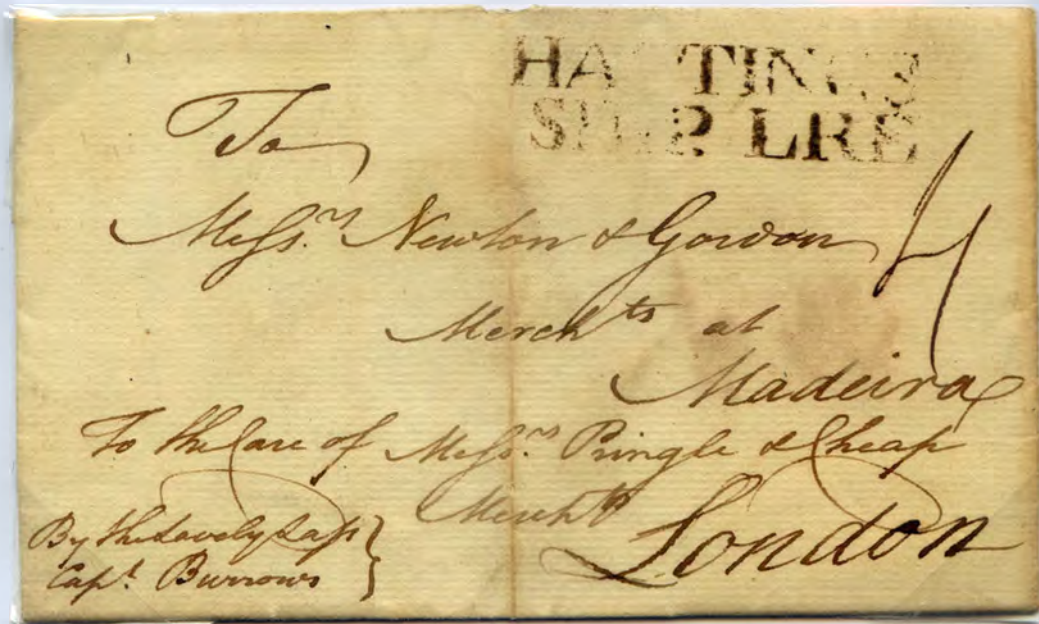 HASTINGS
SHIP LRE
To
Messrs Newton & Gordon
4
Merchts at
Madeira
To the Care of Messrs Pringle & Cheap
Mercht
London
By the Lovely Lass
Capt. Burrows